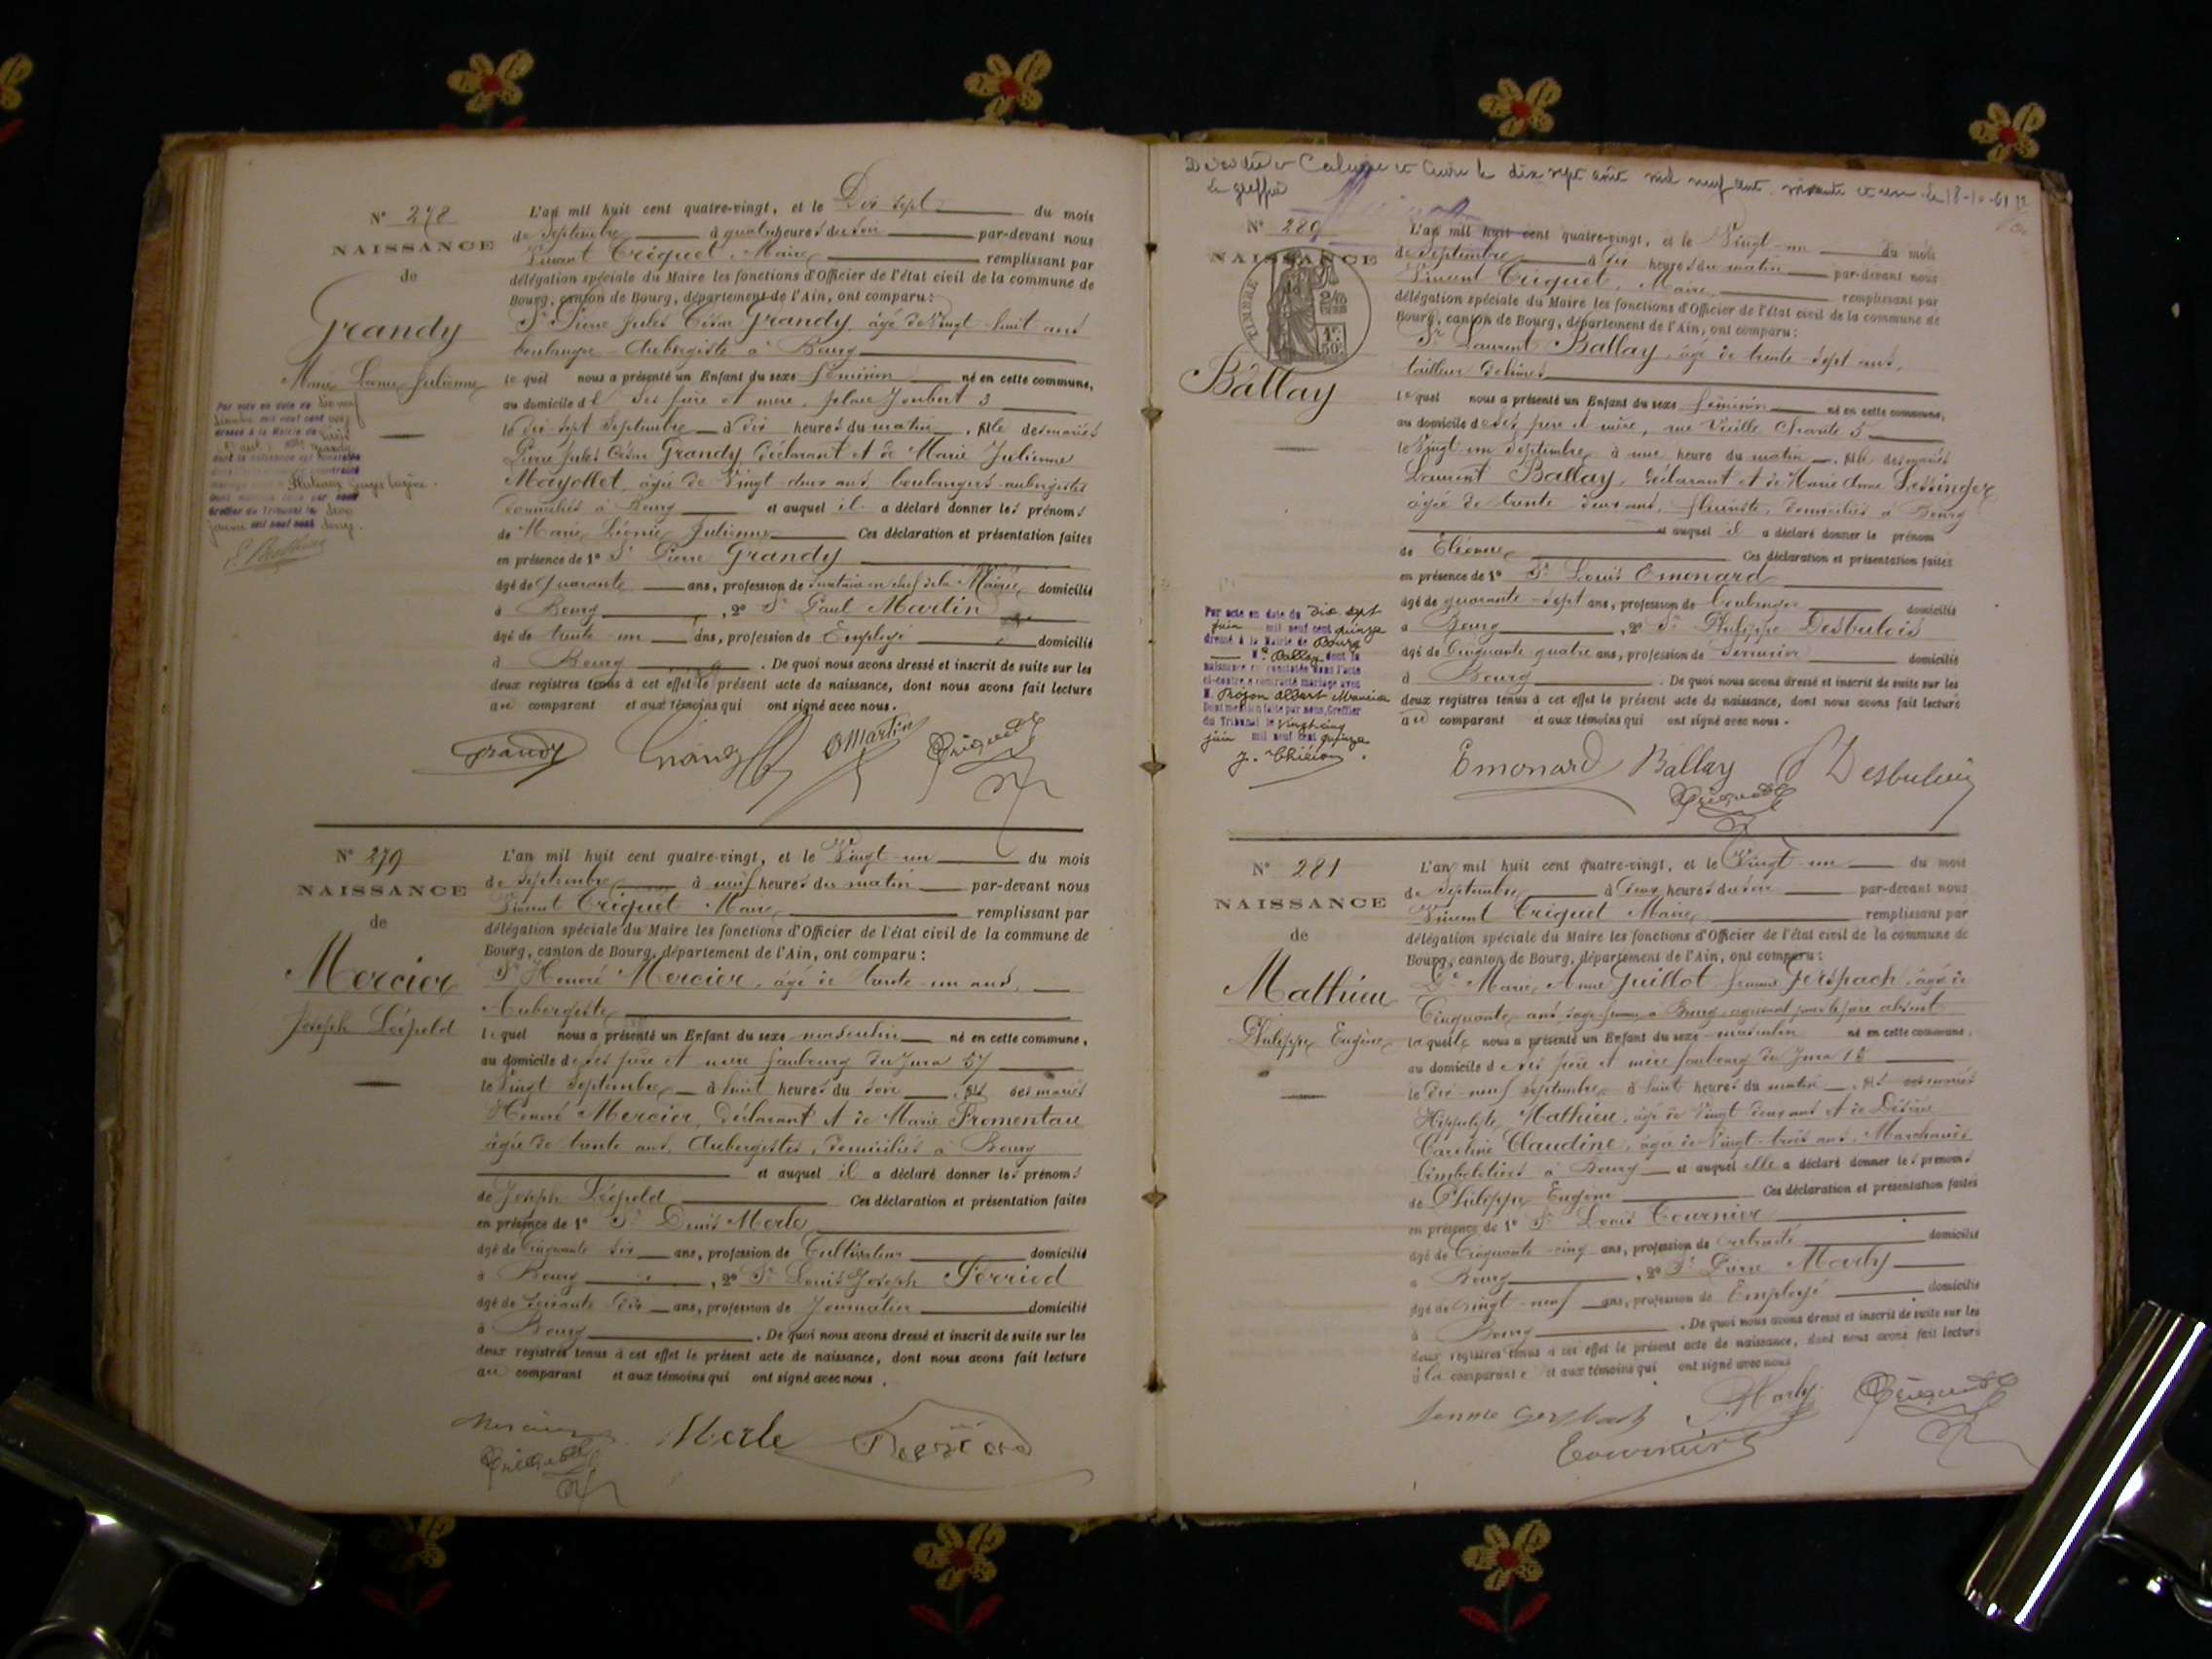 N° 278
NAISSANCE
de
Grandy
Marie Léonie Julienne
L'an mil huit cent quatre-vingt, et le Dix sept du mois
de Septembre à quatre heures du soir par-devant nous
Vincent Criquet, Maire remplissant par
délégation spéciale du Maire les fonctions d'Officier de l'état civil de la commune de
Bourg, canton de Bourg, département de l'Ain, ont comparu :
Sr Pierre Jules César Grandy, âgé de Vingt huit ans
boulanger-Aubergiste à Bourg
lequel nous a présenté un Enfant du sexe féminin né en cette commune,
au domicile de ses père et mère, place Joubert 3
le dix sept Septembre à dix heures du matin, fille des mariés
Pierre Jules César Grandy, déclarant et de Marie Julienne
Mayollet, âgée de Vingt deux ans, boulangers-aubergistes
domiciliés à Bourg et auquel il a déclaré donner les prénoms
de Marie Léonie Julienne Ces déclaration et présentation faites
en présence de 1° Sr Pierre Grandy
âgé de quarante ans, profession de Secrétaire en chef de la Mairie domicilié
à Bourg, 2° Sr Paul Martin
âgé de trente-un ans, profession de Employé domicilié
à Bourg. De quoi nous avons dressé et inscrit de suite sur les
deux registres tenus à cet effet le présent acte de naissance, dont nous avons fait lecture
au comparant et aux témoins qui ont signé avec nous.
Grandy Martin
N° 279
NAISSANCE
de
Mercier
Joseph Léopold
L'an mil huit cent quatre-vingt, et le Vingt-un du mois
de Septembre à neuf heures du matin par-devant nous
Vincent Criquet Maire remplissant par
délégation spéciale du Maire les fonctions d'Officier de l'état civil de la commune de
Bourg, canton de Bourg, département de l'Ain, ont comparu :
Sr Honoré Mercier, âgé de trente-un ans,
Aubergiste
lequel nous a présenté un Enfant du sexe masculin né en cette commune,
au domicile de ses père et mère faubourg du Jura 57
le Vingt Septembre à huit heures du soir, fils des mariés
Honoré Mercier, déclarant et de Marie Fromentau
âgée de trente ans, Aubergistes, domiciliés à Bourg
et auquel il a déclaré donner les prénoms
de Joseph Léopold Ces déclaration et présentation faites
en présence de 1° Sr Denis Merle
âgé de Cinquante six ans, profession de Cultivateur domicilié
à Bourg, 2° Sr Louis Joseph Perried
âgé de soixante dix ans, profession de Journalier domicilié
à Bourg. De quoi nous avons dressé et inscrit de suite sur les
deux registres tenus à cet effet le présent acte de naissance, dont nous avons fait lecture
au comparant et aux témoins qui ont signé avec nous.
Mercier Merle
Décédée à Caluire et Cuire le dix sept août mil neuf cent soixante et un
Le greffier
N° 280
NAISSANCE
TIMBRE
Ballay
L'an mil huit cent quatre-vingt, et le Vingt-un du mois
de Septembre à dix heures du matin par-devant nous
Vincent Criquet, Maire, remplissant par
délégation spéciale du Maire les fonctions d'Officier de l'état civil de la commune de
Bourg, canton de Bourg, département de l'Ain, ont comparu :
Sr Laurent Ballay, âgé de trente-sept ans,
tailleur de limes
lequel nous a présenté un Enfant du sexe féminin né en cette commune,
au domicile de ses père et mère, rue Vieille Charité 5
le Vingt un Septembre à une heure du matin, fille des mariés
Laurent Ballay, déclarant et de Marie Anne Lessinger
âgée de trente-deux ans, fleuriste, domiciliés à Bourg
et auquel il a déclaré donner le prénom
de Eléonore Ces déclaration et présentation faites
en présence de 1° Sr Louis Emonard
âgé de quarante-sept ans, profession de boulanger domicilié
à Bourg, 2° Sr Philippe Desbulois
âgé de Cinquante quatre ans, profession de Serrurier domicilié
à Bourg. De quoi nous avons dressé et inscrit de suite sur les
deux registres tenus à cet effet le présent acte de naissance, dont nous avons fait lecture
au comparant et aux témoins qui ont signé avec nous.
Par acte en date du Dix sept
juin mil neuf cent quinze
dressé à la Mairie de Bourg
Ballay dont la
naissance est constatée dans l'acte
ci-contre a contracté mariage avec
M. Albert Maurice
Dont mention faite par nous, Greffier
du Tribunal le Vingt cinq
juin mil neuf cent quinze
Emonard Ballay
N° 281
NAISSANCE
de
Mathieu
Philippe Eugène
L'an mil huit cent quatre-vingt, et le Vingt-un du mois
de Septembre à deux heures du soir par-devant nous
Vincent Criquet Maire remplissant par
délégation spéciale du Maire les fonctions d'Officier de l'état civil de la commune de
Bourg, canton de Bourg, département de l'Ain, ont comparu :
De Marie Anne Guillot femme Gerspach, âgée de
Cinquante ans, sage-femme à Bourg, agissant pour le père absent
laquelle nous a présenté un Enfant du sexe masculin né en cette commune,
au domicile de ses père et mère faubourg du Jura
le dix-neuf septembre à huit heures du matin, fils des mariés
Hippolyte Mathieu, âgé de Vingt deux ans et de Désirée
Caroline Claudine, âgée de Vingt-trois ans, Marchands
bimbelotiers à Bourg et auquel elle a déclaré donner les prénoms
de Philippe Eugène Ces déclaration et présentation faites
en présence de 1° Sr Louis Tournier
âgé de Cinquante-cinq ans, profession de retraité domicilié
à Bourg, 2° Sr Pierre Marly
âgé de vingt-neuf ans, profession de Employé domicilié
à Bourg. De quoi nous avons dressé et inscrit de suite sur les
deux registres tenus à cet effet le présent acte de naissance, dont nous avons fait lecture
à la comparante et aux témoins qui ont signé avec nous
femme Gerspach
Tournier